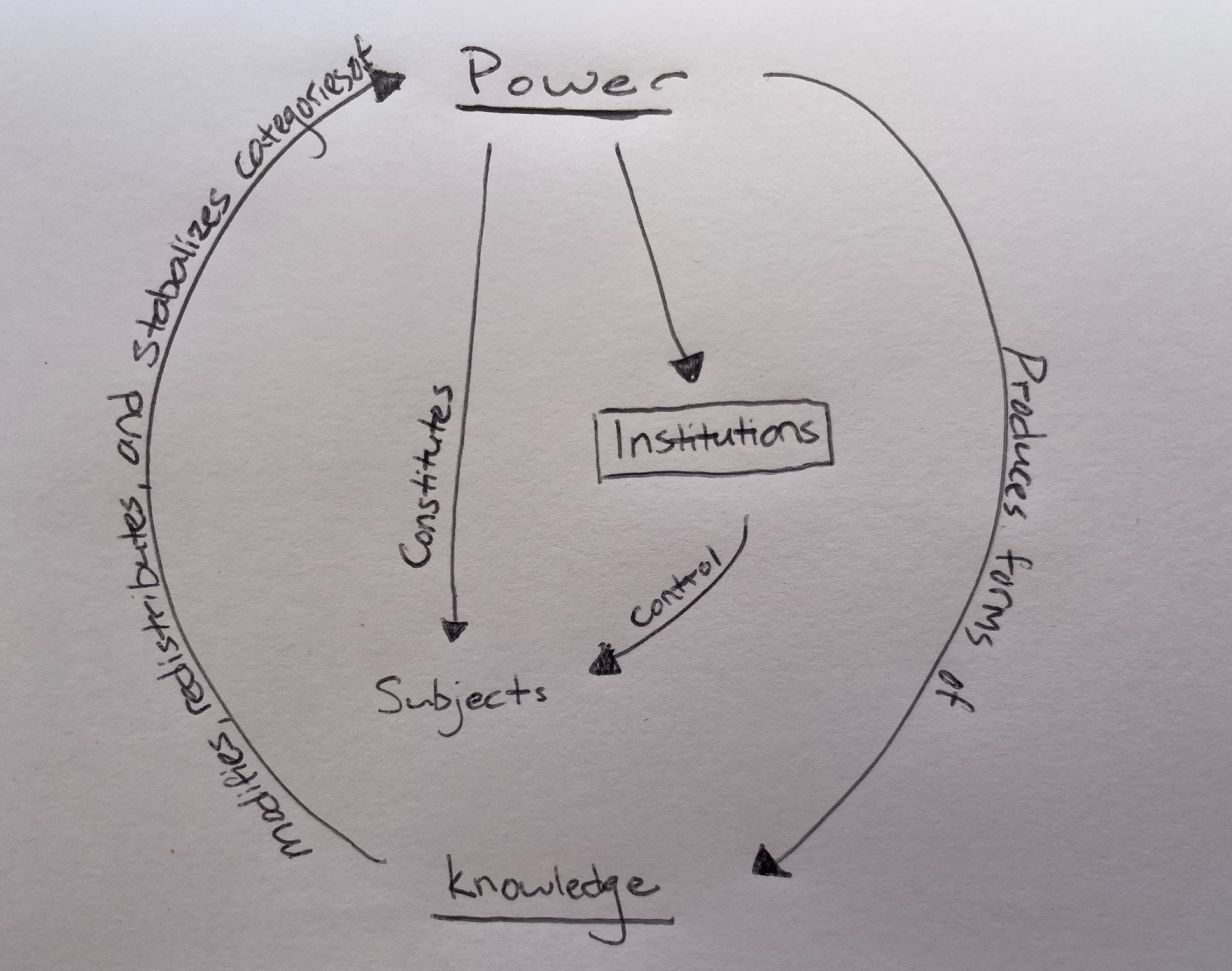 Power
modifies, redistributes, and stabalizes categories of
Produces forms of
Constitutes
Institutions
control
Subjects
knowledge